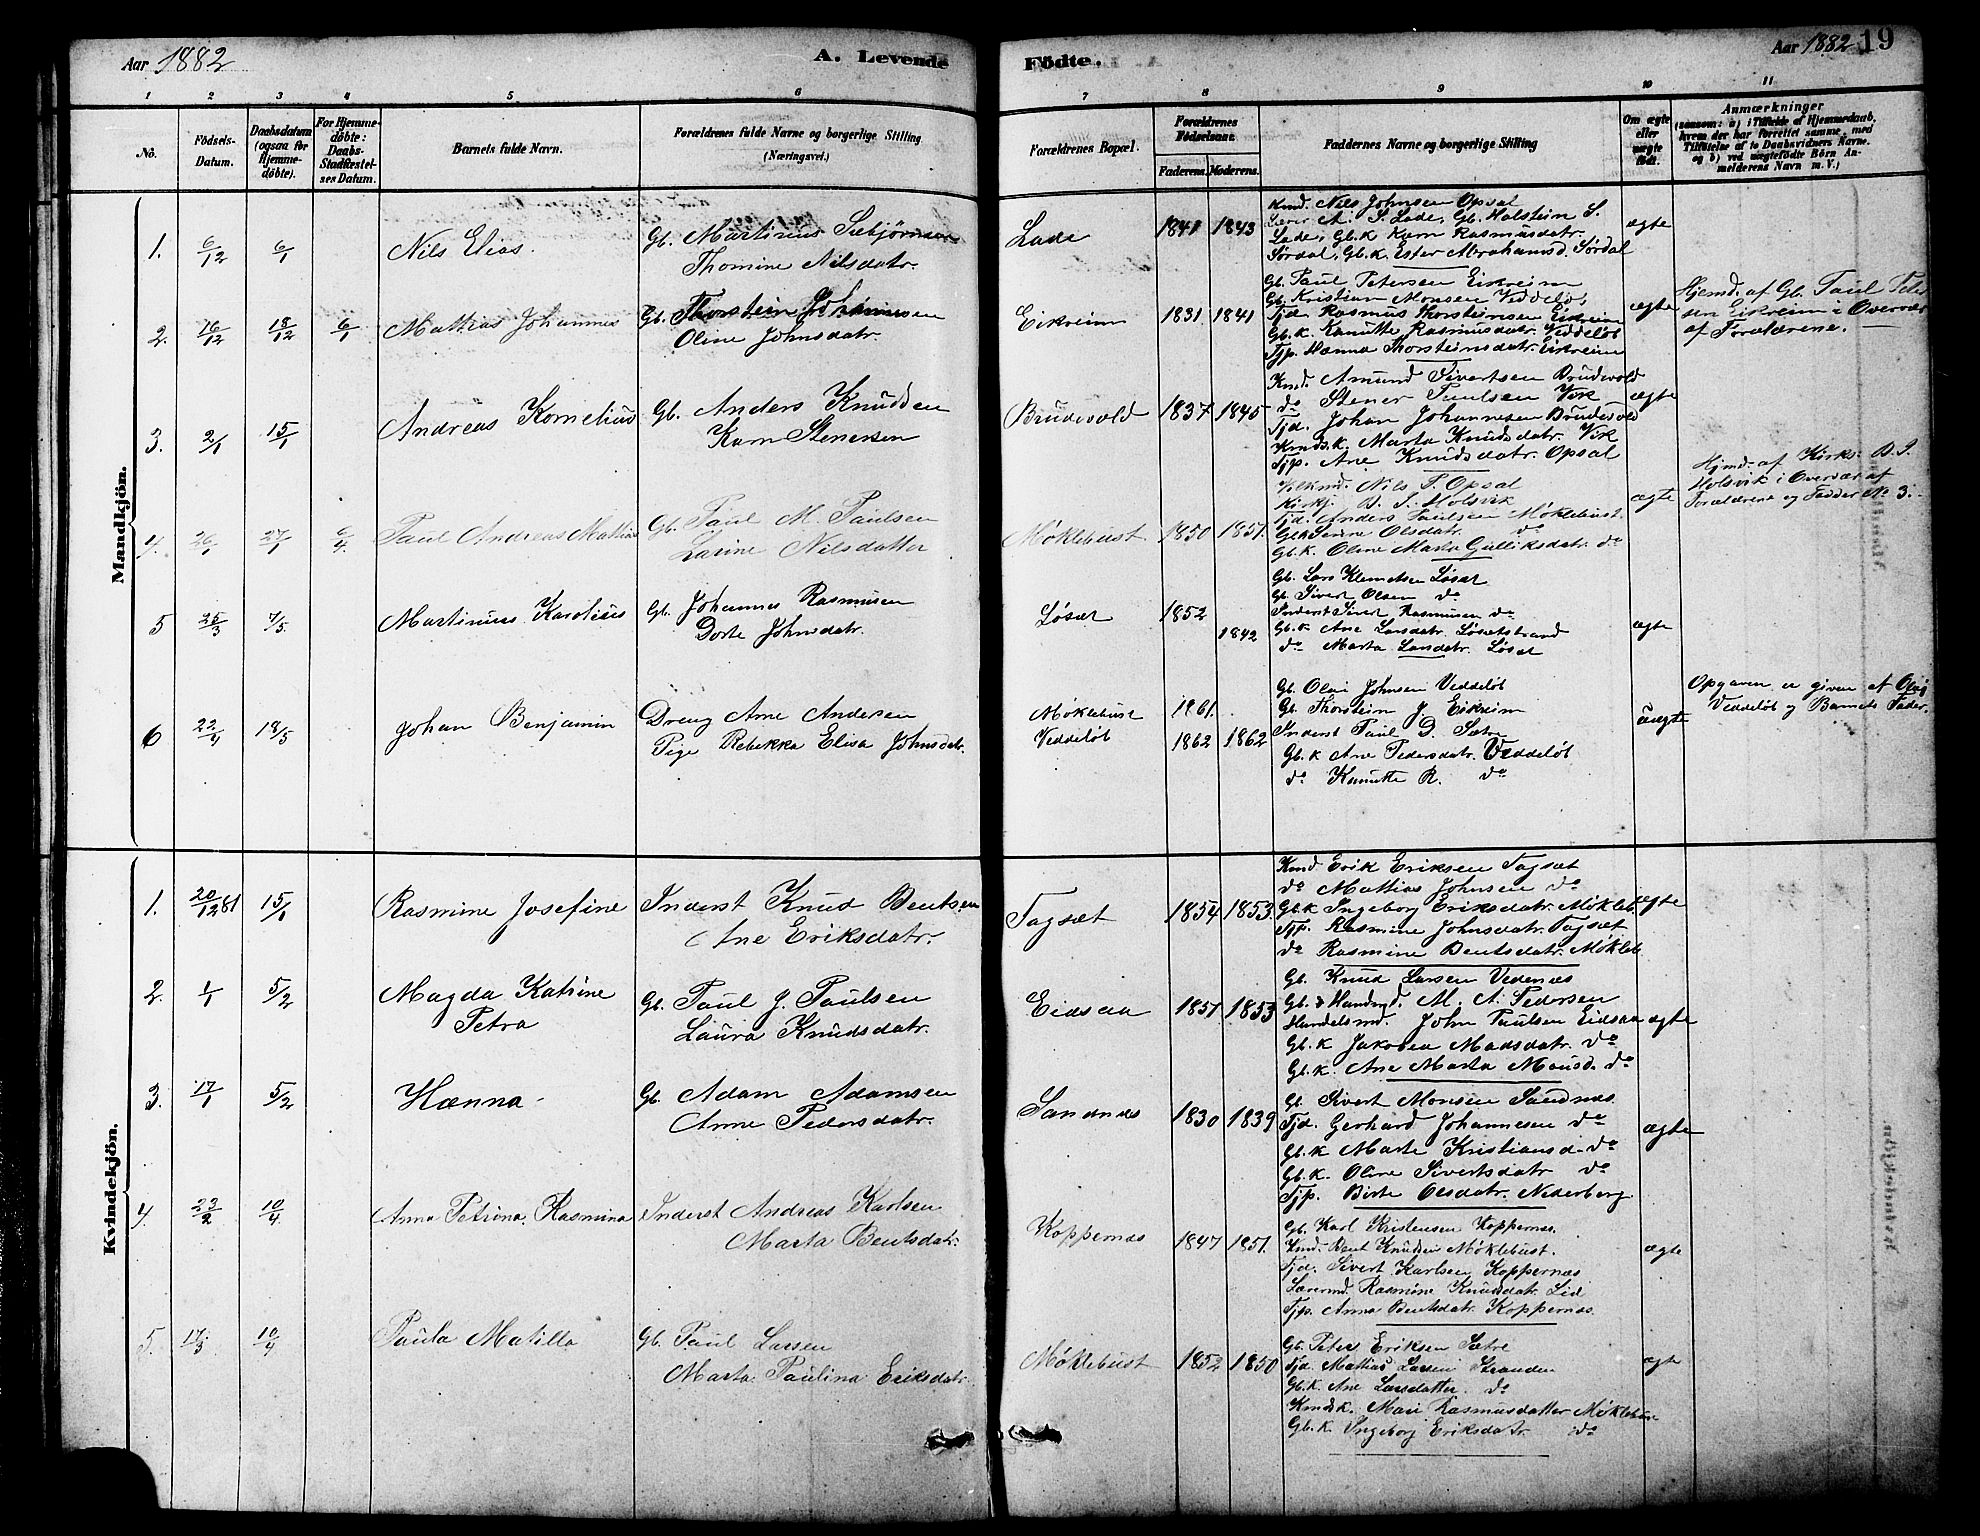 Aar 1882
A. Levende
Födte.
Aar 1882
19
1 2 3 4 5 6 7 8 9 10 11
No.
Födsels-Datum.
Daabsdatum (ogsaa for Hjemmedöbte).
For Hjemmedöbte: Daabs-Stadfæstelses Datum.
Barnets fulde Navn.
Forældrenes fulde Navne og borgerlige Stilling (Næringsvei.)
Forældrenes Bopæl.
Forældrenes Födselsaar.
Faderens. Moderens.
Faddernes Navne og borgerlige Stilling
Om ægte eller uægte födt.
Anmærkninger
(saasom: a) i Tilfælde af Hjemmedaab, hvem der har forrettet samme, med Tilföielse af to Daabsvidners Navne. og b) ved uægtefödte Börn Anmelderens Navn m. V.)
Mandkjön.
1. 6/12 6/1 Nils Elias.
Gb. Martinus Sebjørnsen
Thomine Nilsdatr.
Lade 1841 1843
Kmd. Nils Johnsen Opsal
A. S. Lade, Gb. Holstein S.
Lade, Gb.k Karn Rasmusdatr.
Sørdal, Gb.k. Ester Abrahamsd. Sørdal
ægte
2. 16/12 18/12 6/1 Mattias Johannes
Gb. Thorstein Johannesen
Oline Johnsdatr.
Eikreim 1831 1841
Gb. Paul Petersen Eikreim
Gb. Kristian Monsen Veddeløb
Tjd. Rasmus Thorsteinsen Eikreim
Gb.k. Knutte Rasmusdatr. Veddeløb
Tjp. Hanna Thorsteinsdatr. Eikreim
ægte
Hjemd. af Gb. Paul Peter
sen Eikreim i Overvær
af Forældrene.
3. 2/1 15/1 Andreas Kornelius
Gb. Anders Knudsen
Karn Stenersen
Brudevold 1837 1845
Kmd. Amund Sivertsen Brudevold
do Stener Paulsen Vik
Tjd. Johan Johannesen Brudevold
Kmds.k. Marta Knudsdatr. Vik
Tjp. Ane Knudsdatr. Opsal
ægte
4. 26/1 27/1 6/4. Paul Andreas Mattias
Gb. Paul M. Paulsen
Larine Nilsdatter
Møklebust 1850 1851.
Nils T. Opsal
Kirkj. B. S. Holsvik
Tjd. Anders Paulsen Møklebust
Gb.k Serine Olsdatr. do
Gb.k. Oline Marta Gulliksdatr. do
ægte
Hjmd. af Kirks. B. S.
Holsvik i Overvær af
Forældrene og Fadder No 3.
5 25/3 7/5. Martinus Karolius
Gb. Johannes Rasmusen
Dorte Johnsdatr.
Løset 1852 1842
Gb. Lars Klemetsen Løset
Gb. Sivert Olsen do
Inderst Sivert Rasmusen do
Gb.k Ane Larsdatr. Løsetstrand
do Marta Larsdatr. Løset
ægte
6 22/4 18/5 Johan Benjamin
Dreng Arne Andersen
Pige Rebekka Elisa Johnsdatr.
Møklebust 1861.
Veddeløb 1862 1862
Gb. Olai Johnsen Veddeløb
Gb. Thorstein J. Eikreim
Inderst Paul D. Sætre
Gb.k Ane Pedersdatr. Veddeløb
do Knutte R. do
uægte
Opgaven er given af Olai
Veddeløb og Barnets Fader.
Kvindekjön.
1. 20/12 81 15/1 Rasmine Josefine
Inderst Knud Bentsen
Ane Eriksdatr.
Tagsæt 1854 1853.
Kmd Erik Eriksen Tagsæt
do Mattias Johnsen do
Gb.k Ingeborg Eriksdatr. Møkleb.
Tjp. Rasmine Johnsdatr. Tagsæt
do Rasmine Bentsdatr. Møkleb
ægte
2. 1/1 5/2 Magda Katrine
Petra
Gb. Paul J. Paulsen
Laura Knudsdatr.
Eidsaa 1851 1853
Gb. Knud Larsen Vedenæs
Gb. & Handmd. M. A. Pedersen
Handelsmd. John Paulsen Eidsaa
Gb.k Jakobea Madsdatr. do
Gb.k. Ane Marta Monsd. do
ægte
3. 17/1 5/2 Hanna
Gb. Adam Adamsen
Anne Pedersdatr.
Sandnes 1830 1839
Gb. Sivert Monsen Sandnes.
Tjd. Gerhard Johannesen do
Gb.k Marte Kristiansd. do
Gb.k. Oline Sivertsdatr do
Tjp. Birte Olsdatr. Nederberg.
ægte
4. 23/2 10/4 Anna Petrina Rasmina
Inderst Andreas Karlsen
Marta Bentsdatr.
Koppernæs 1847 1851.
Gb. Karl Kristensen Koppernæs.
Kmd. Bent Knudsen Møklebust.
Tjd. Sivert Karlsen Koppernæs
Rasmine Knudsdatr. Lid
Tjp. Anna Bentsdatr. Koppernæs.
ægte
5. 17/3 10/4 Paula Matilla
Gb. Paul Larsen
Marta Paulina Eriksdatr.
Møklebust 1852 1850
Gb. Peter Eriksen Sætre
Tjd. Mattias Larsen Stranden
Gb.k. Ane Larsdatter do
Kmdsk. Mari Rasmusdatter Møklebust
Gb.k Ingeborg Eriksdatr. do
ægte